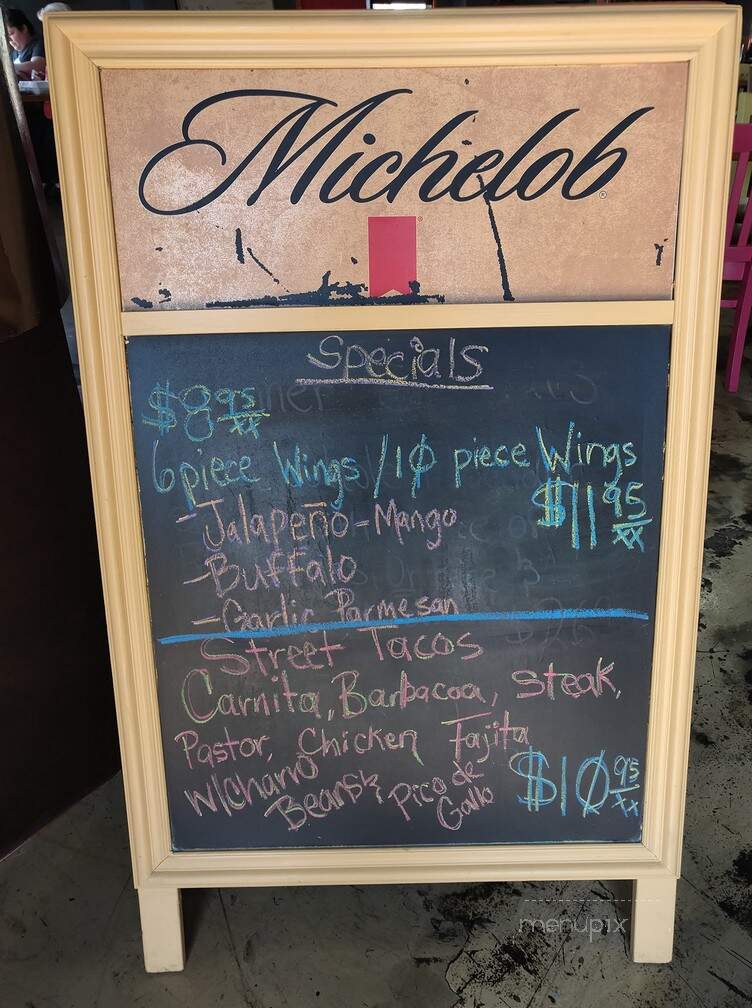 Michelob
Specials
$8 95/xx
6 piece Wings / 10 piece Wings
$11 95/xx
- Jalapeño - Mango
- Buffalo
- Garlic Parmesan
Street Tacos
Carnita, Barbacoa, Steak,
Pastor, Chicken Fajita
w/Charro Beans & Pico de Gallo
$10 95/xx
menupix